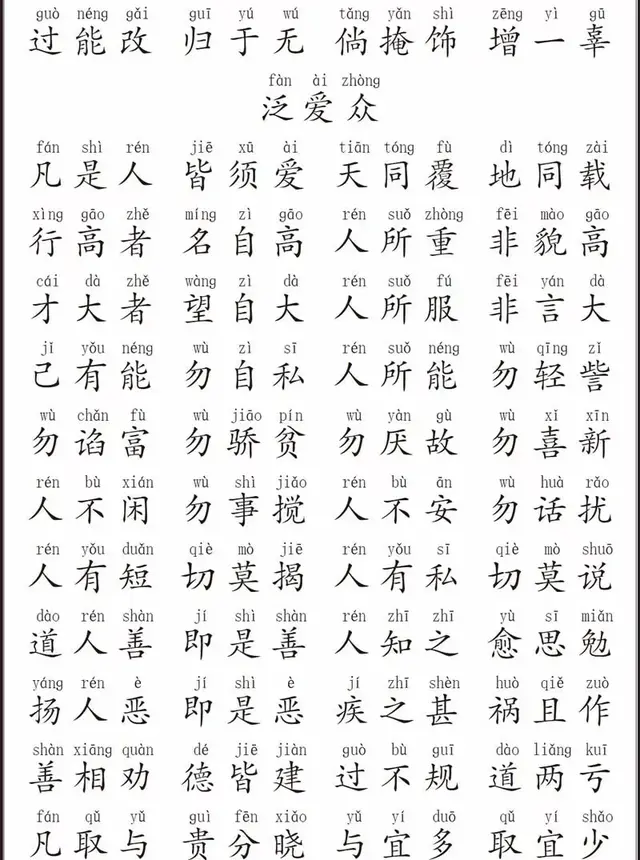 guò néng gǎi guī yú wú tǎng yǎn shì zēng yì gū
过能改 归于无 倘掩饰 增一辜
fàn ài zhòng
泛爱众
fán shì rén jiē xū ài tiān tóng fù dì tóng zài
凡是人 皆须爱 天同覆 地同载
xìng gāo zhě míng zì gāo rén suǒ zhòng fēi mào gāo
行高者 名自高 人所重 非貌高
cái dà zhě wàng zì dà rén suǒ fú fēi yán dà
才大者 望自大 人所服 非言大
jǐ yǒu néng wù zì sī rén suǒ néng wù qīng zǐ
己有能 勿自私 人所能 勿轻訾
wù chǎn fù wù jiāo pín wù yàn gù wù xǐ xīn
勿谄富 勿骄贫 勿厌故 勿喜新
rén bù xián wù shì jiǎo rén bù ān wù huà rǎo
人不闲 勿事搅 人不安 勿话扰
rén yǒu duǎn qiè mò jiē rén yǒu sī qiè mò shuō
人有短 切莫揭 人有私 切莫说
dào rén shàn jí shì shàn rén zhī zhī yù sī miǎn
道人善 即是善 人知之 愈思勉
yáng rén è jí shì è jí zhī shèn huò qiě zuò
扬人恶 即是恶 疾之甚 祸且作
shàn xiāng quàn dé jiē jiàn guò bù guī dào liǎng kuī
善相劝 德皆建 过不规 道两亏
fán qǔ yǔ guì fēn xiǎo yǔ yí duō qǔ yí shǎo
凡取与 贵分晓 与宜多 取宜少